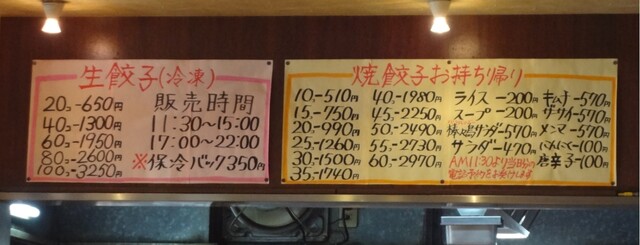 生餃子(冷凍)
20コ-650円
40コ-1300円
60コ-1950円
80コ-2600円
100コ-3250円
販売時間
11:30〜15:00
17:00〜22:00
※保冷パック350円
焼餃子お持ち帰り
10コ-510円
15コ-750円
20コ-990円
25コ-1260円
30コ-1500円
35コ-1740円
40コ-1980円
45コ-2250円
50コ-2490円
55コ-2730円
60コ-2970円
ライス-200円
スープ-200円
サラダー570円
サラダー470円
AM11:30より
キムチ-570円
ザーサイ-570円
メンマ-570円
-100円
唐辛子-100円